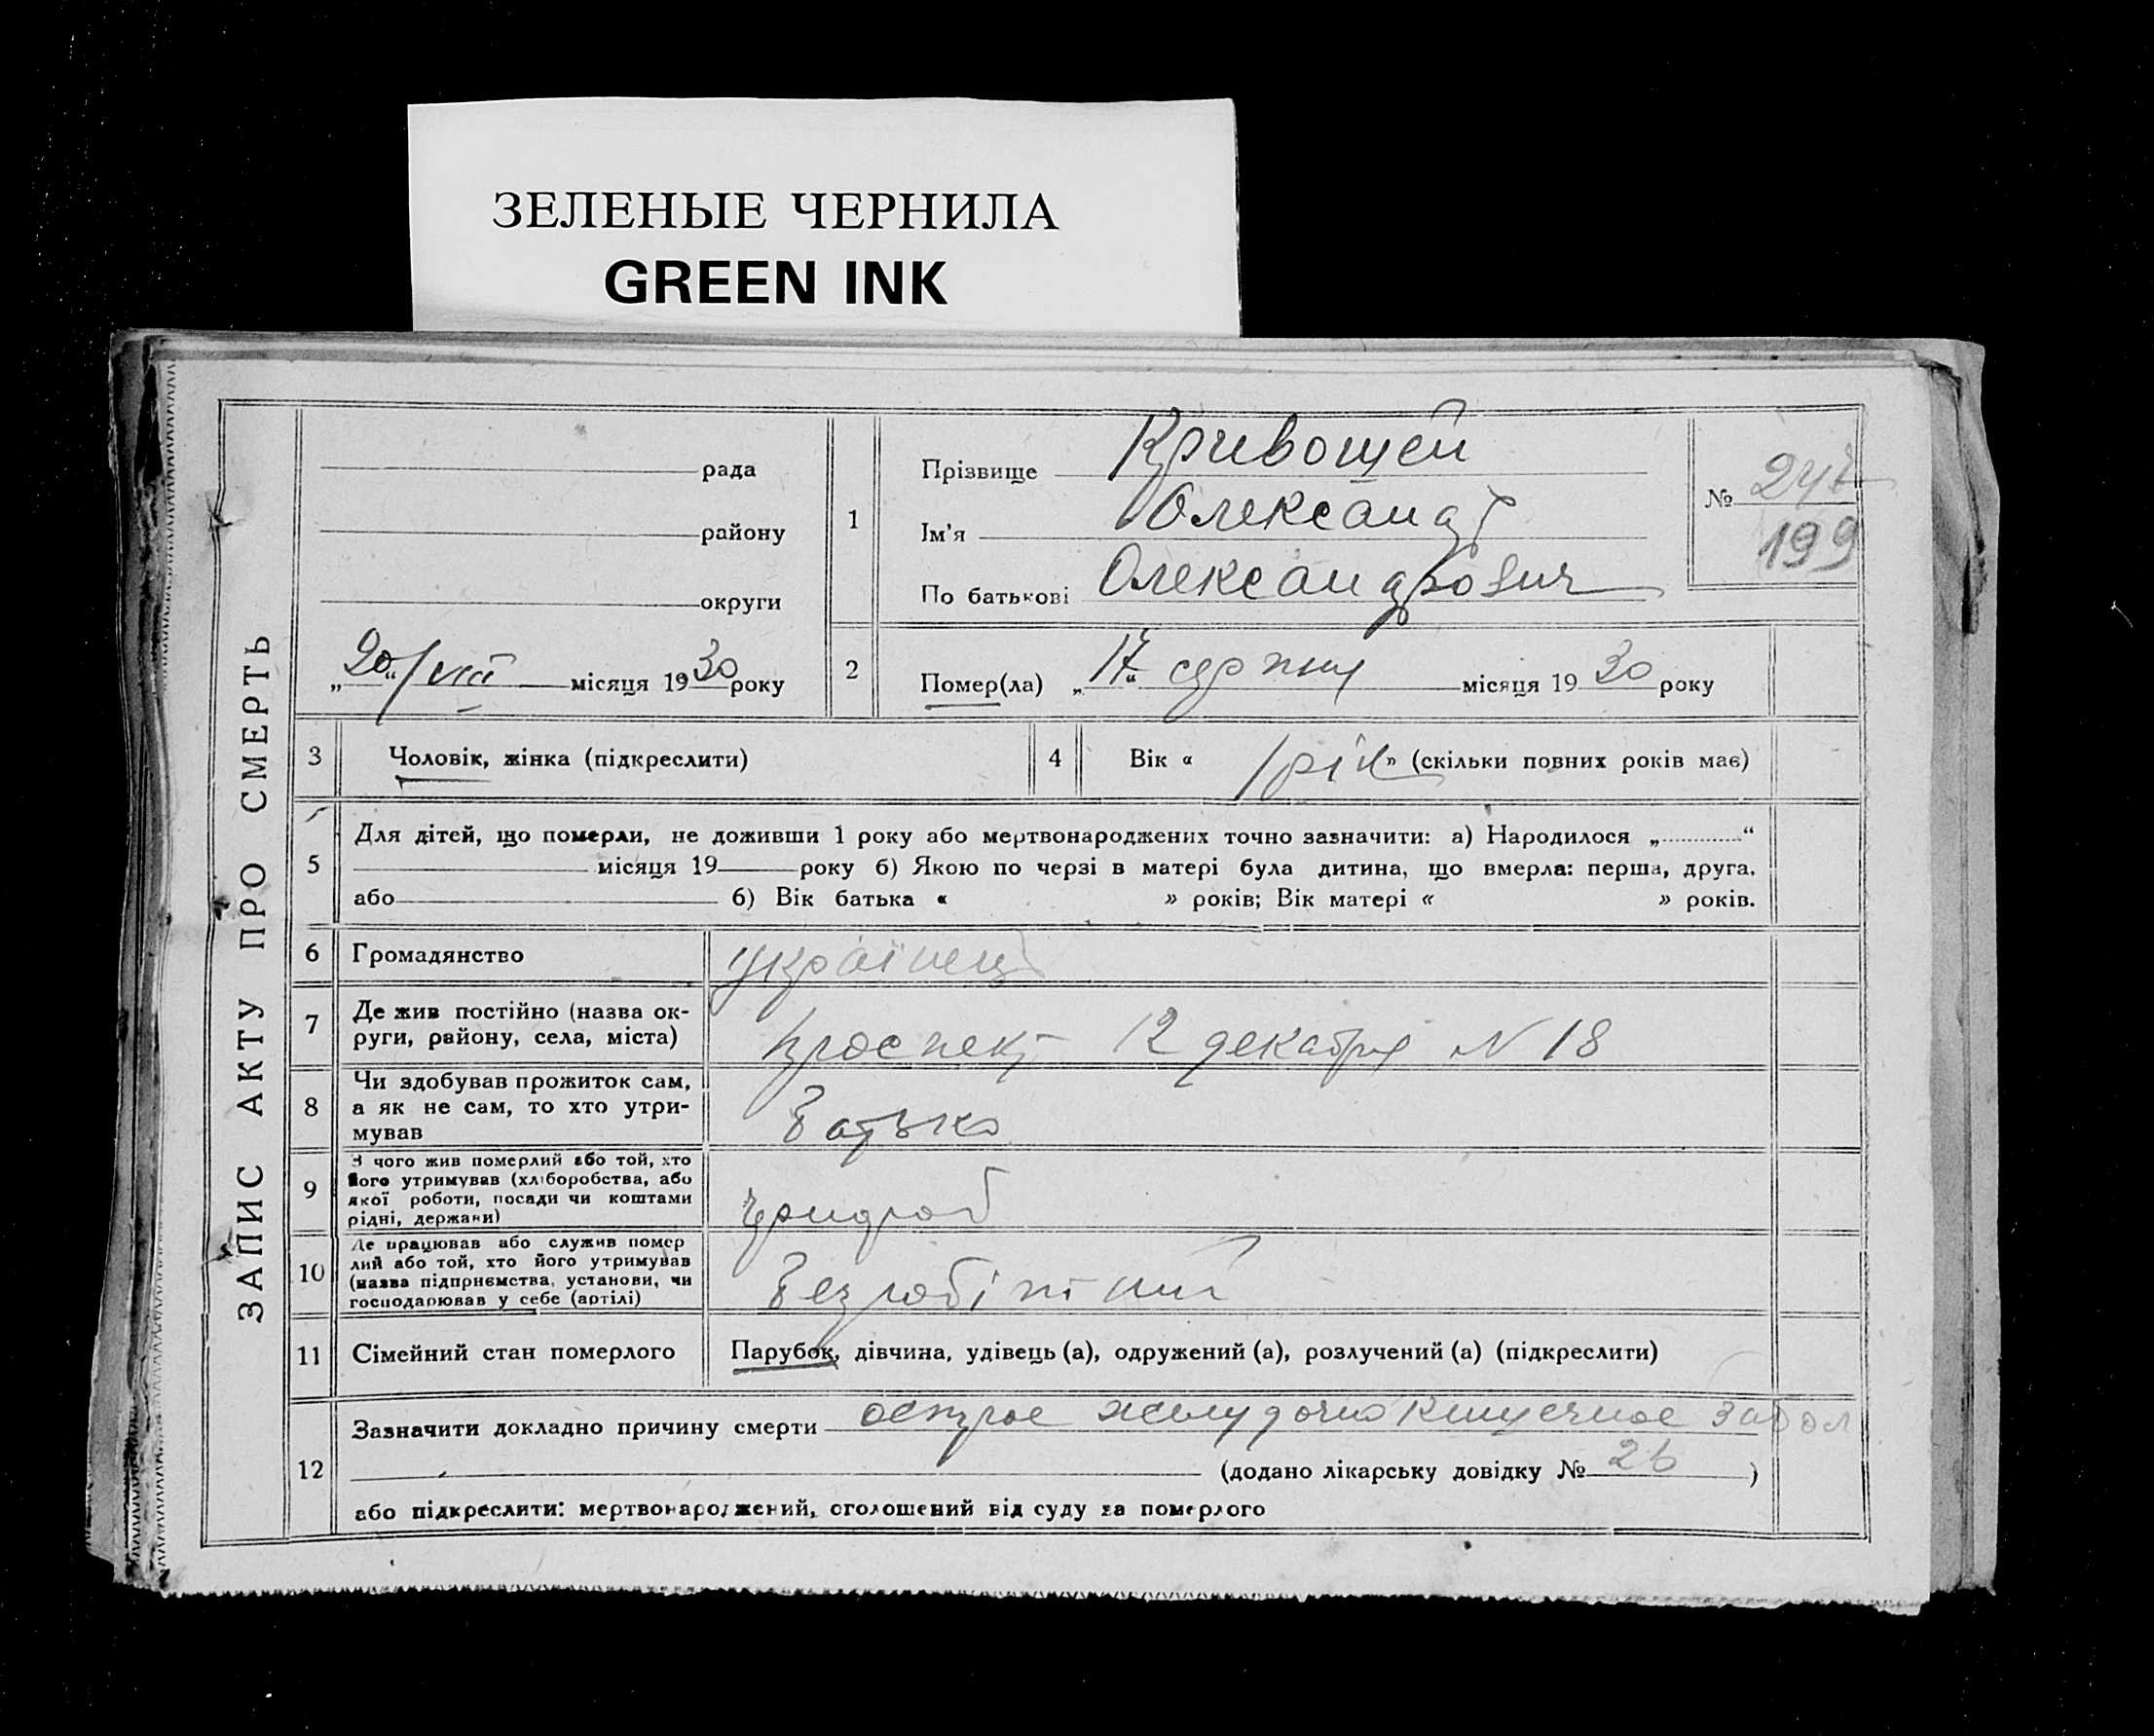 ЗЕЛЕНЫЕ ЧЕРНИЛА
GREEN INK
ЗАПИС АКТУ ПРО СМЕРТЬ
рада
району
округи
„20“/VIII місяця 1930 року
1
Прізвище Кривошей
Ім'я Олександр
По батькові Олександрович
№
199
2
Помер(ла) „17“ серпня місяця 1930 року
3 Чоловік, жінка (підкреслити)
4 Вік « 1 рік » (скільки повних років має)
5
Для дітей, що померли, не доживши 1 року або мертвонароджених точно зазначити: а) Народилося „ “
місяця 19 року б) Якою по черзі в матері була дитина, що вмерла: перша, друга,
або б) Вік батька « » років; Вік матері « » років.
6 Громадянство українец
7
Де жив постійно (назва ок-
руги, району, села, міста)
проспект 12 декабря N 18
8
Чи здобував прожиток сам,
а як не сам, то хто утри-
мував
Батько
9
З чого жив померлий або той, хто
його утримував (хліборобства, або
якої роботи, посади чи коштами
рідні, держави)
10
Де працював або служив помер
лий або той, хто його утримував
(назва підприємства, установи, чи
господарював у себе (артілі)
Безробітний
11 Сімейний стан померлого Парубок, дівчина, удівець (а), одружений (а), розлучений (а) (підкреслити)
12
Зазначити докладно причину смерти острое желудочно кишечное забол
(додано лікарську довідку № 26 )
або підкреслити: мертвонароджений, оголошений від суду за померлого